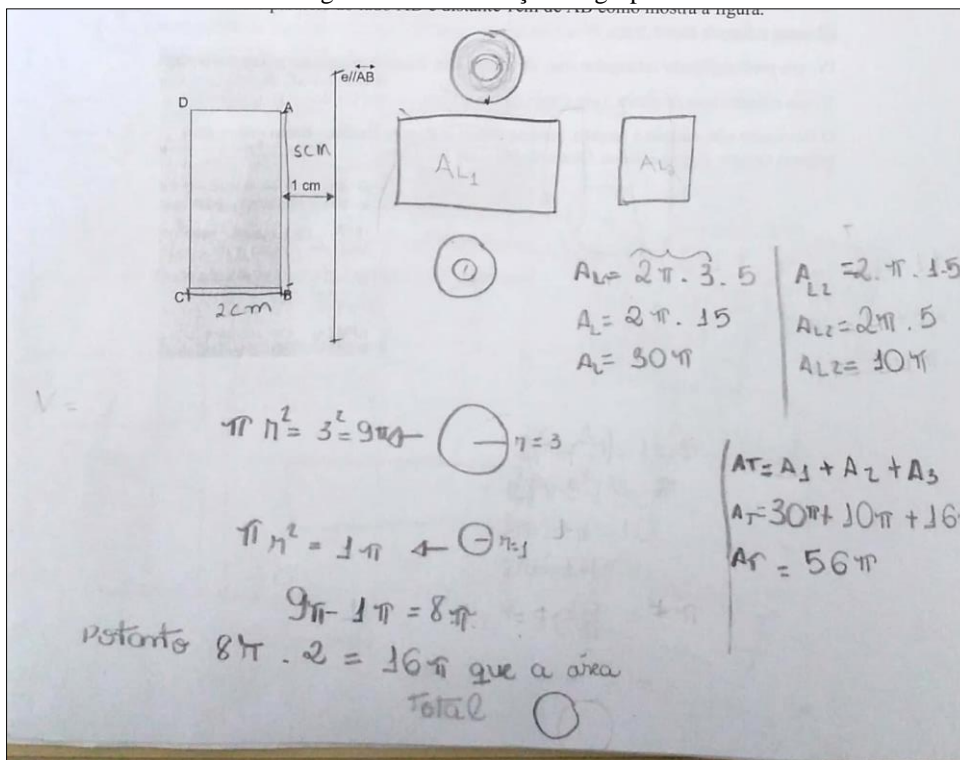 e//AB
D A
5cm
1 cm
C B
2cm
AL1
AL= 2π . 3 . 5
AL= 2π . 15
AL= 30π
AL2 =2. π . 1.5
AL2= 2π . 5
AL2= 10π
V =
π r² = 3² = 9π ← r = 3
π r² = 1π ← r=1
9π - 1π = 8π
Potanto 8π . 2 = 16π que a área
Total
AT= A1 + A2 + A3
AT=30π+ 10π + 16
AT = 56π